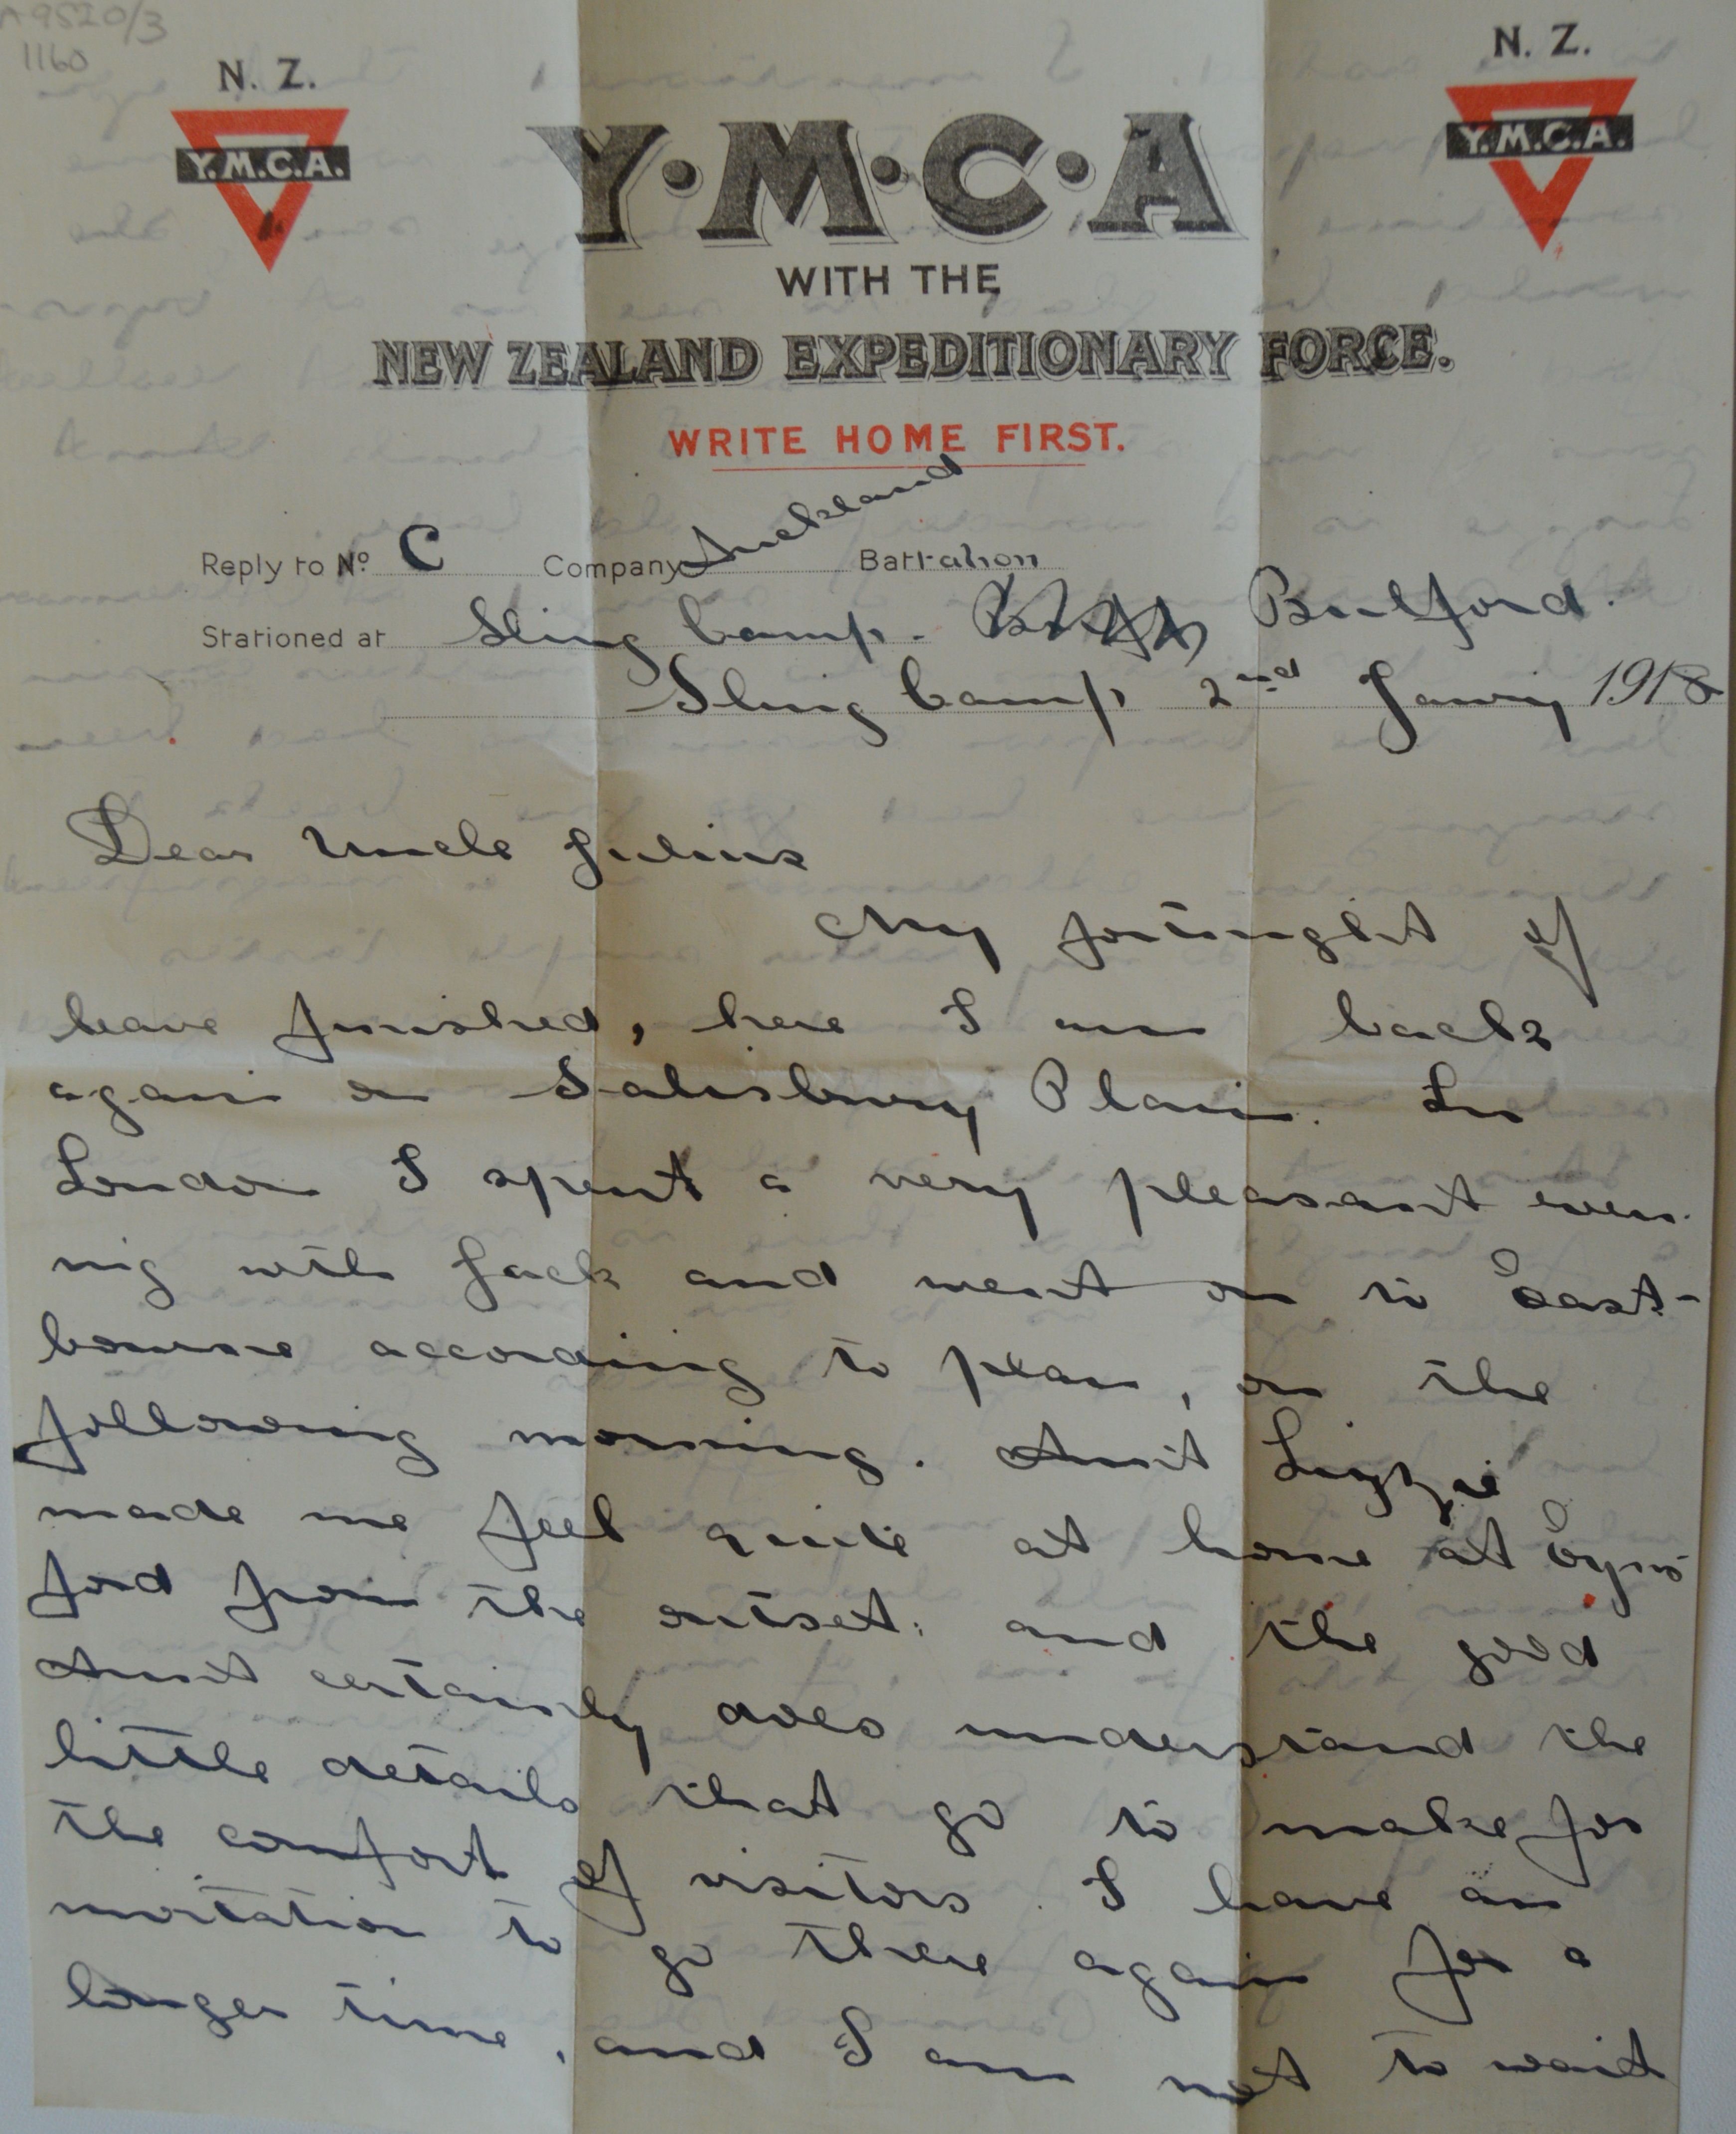 A9520/3
1160
N. Z.
Y.M.C.A.
N. Z.
Y.M.C.A.
Y·M·C·A
WITH THE
NEW ZEALAND EXPEDITIONARY FORCE.
WRITE HOME FIRST.
Reply to No C Company Auckland Battalion
Stationed at Sling Camp. Bulford.
Sling Camp 2nd Janry 1918
Dear Uncle Julius
My fortnight of
leave finished, here I am back
again on Salisbury Plain. In
London I spent a very pleasant even-
ing with Jack and went on to East-
bourne according to plan, on the
following morning. Aunt Lizzie
made me feel quite at home at Eyns-
ford from the outset: and the good
Aunt certainly does understand the
little details that go to make for
the comfort of visitors. I have an
invitation to go there again for a
longer time, and I am not to wait